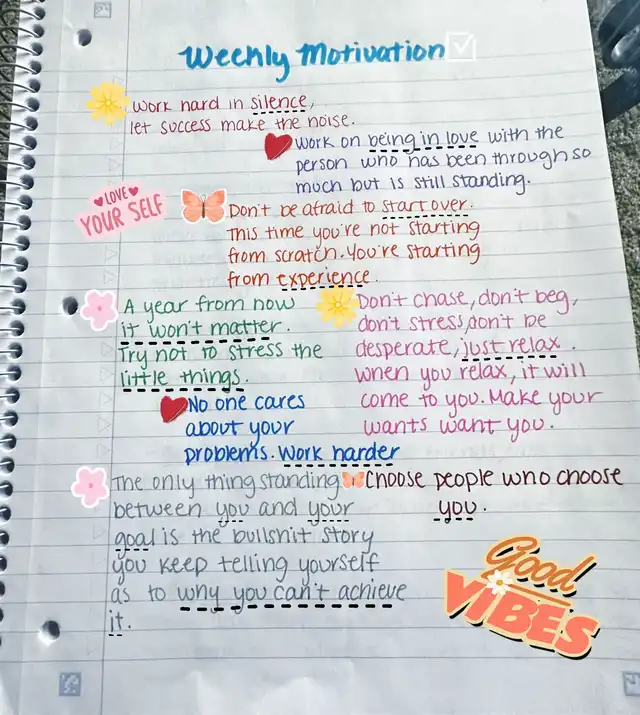 Weekly Motivation
Work hard in silence,
let success make the noise.
Work on being in love with the
person who has been through so
much but is still standing.
LOVE
YOUR SELF
Don't be afraid to start over.
This time you're not starting
from scratch. You're starting
from experience.
A year from now
it won't matter.
Try not to stress the
little things.
Don't chase, don't beg,
don't stress, don't be
desperate, just relax.
when you relax, it will
come to you. Make your
wants want you.
No one cares
about your
problems. Work harder
The only thing standing
between you and your
goal is the bullshit story
you keep telling yourself
as to why you can't achieve
it.
Choose people who choose
you.
Good
VIBES